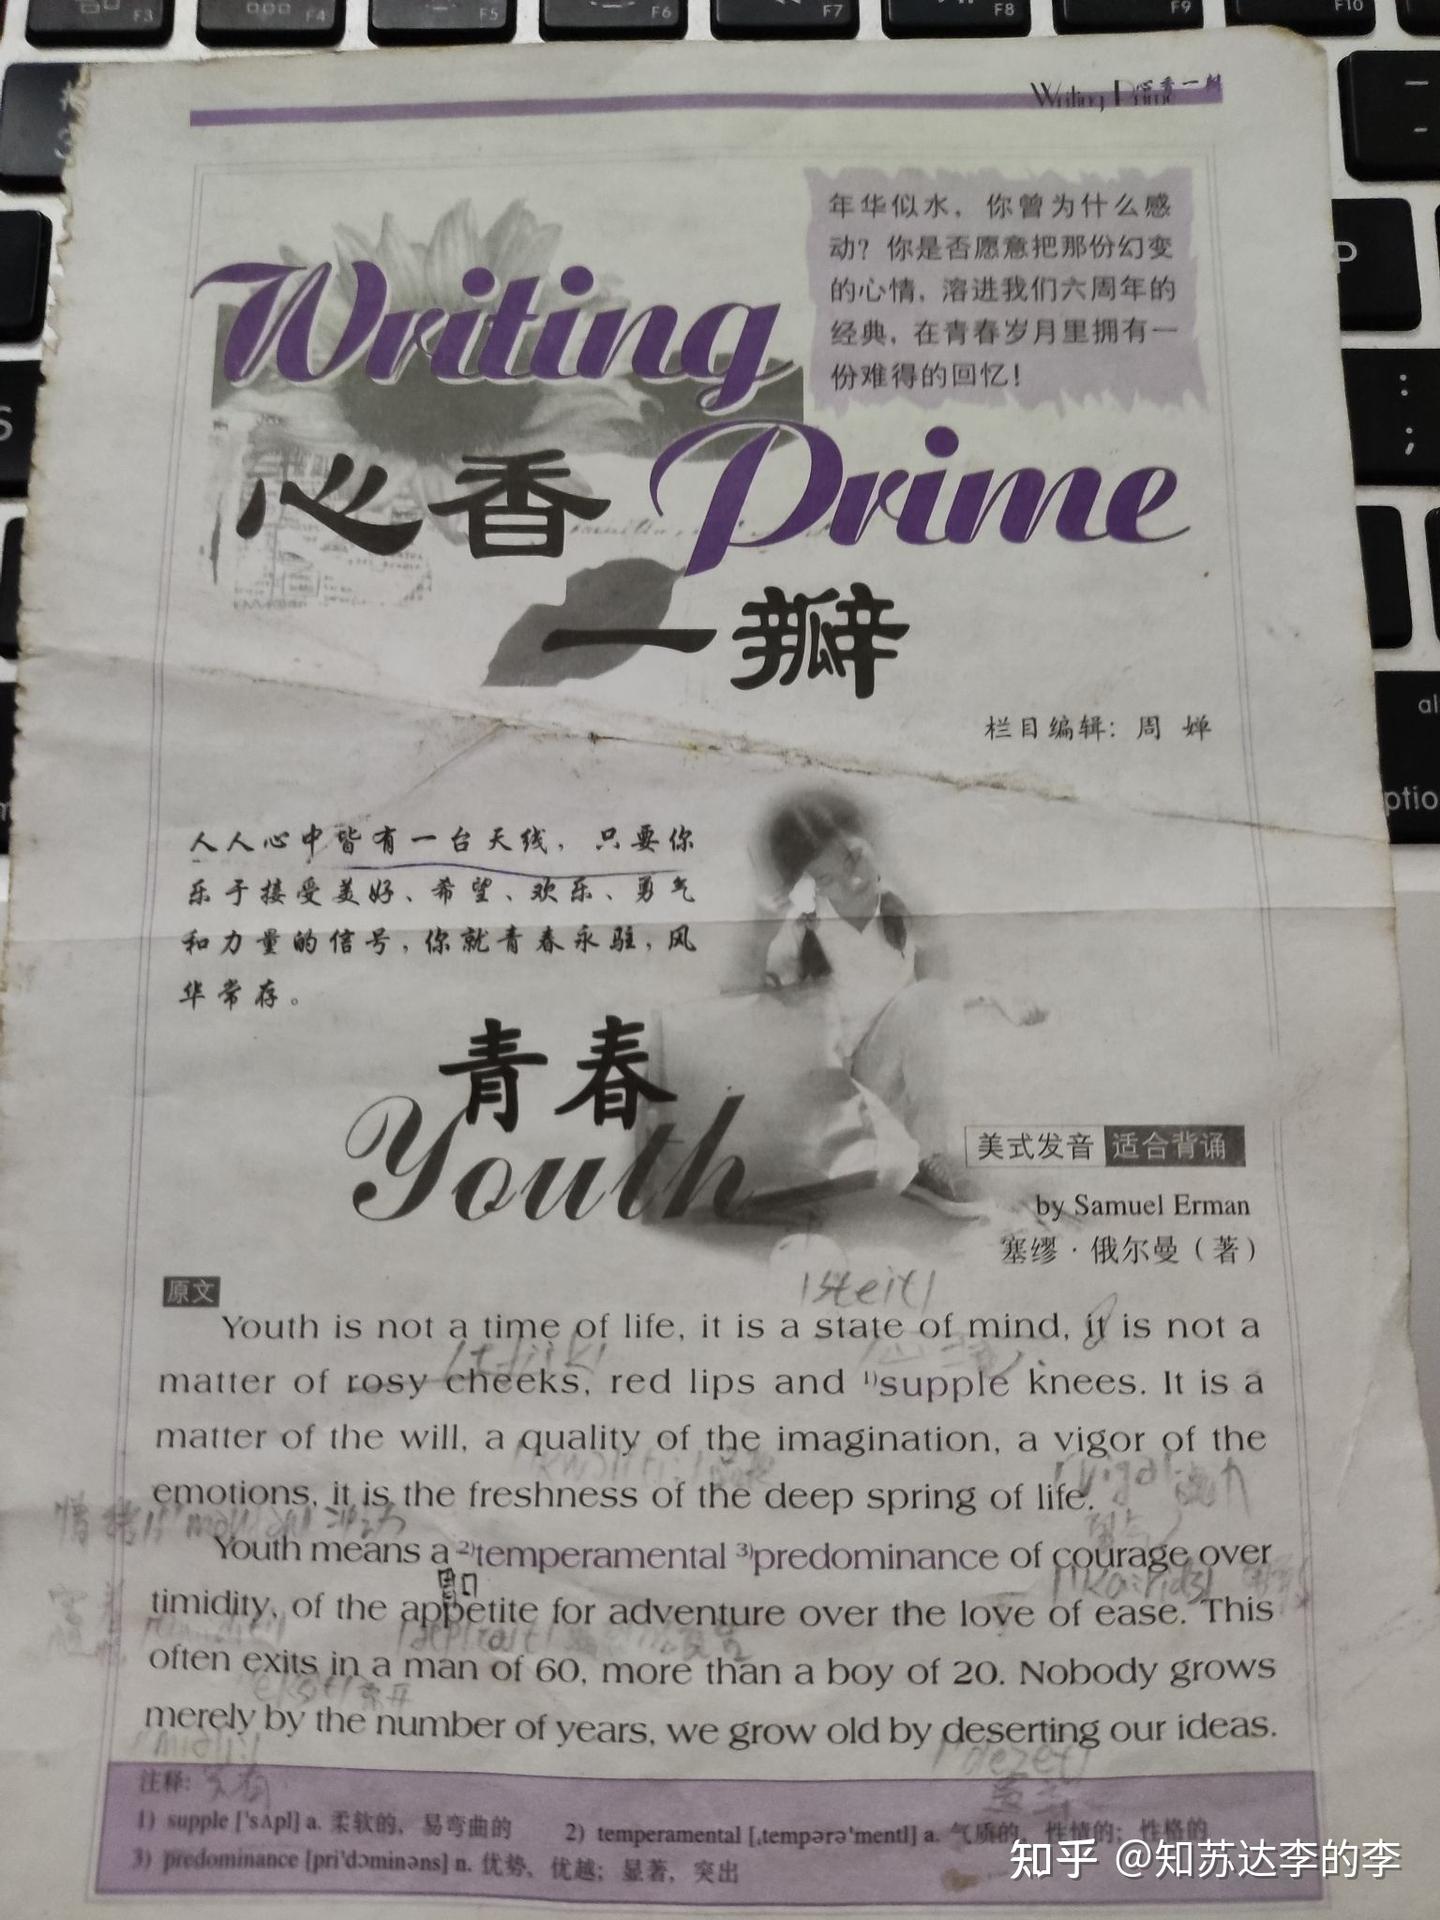 F3
F4
F5
F6
F7
F8
F9
F10
Writing Prime 心香一瓣
年华似水，你曾为什么感
动？你是否愿意把那份幻变
的心情，溶进我们六周年的
经典，在青春岁月里拥有一
份难得的回忆！
Writing
心香 Prime
一瓣
栏目编辑：周 婵
人人心中皆有一台天线，只要你
乐于接受美好、希望、欢乐、勇气
和力量的信号，你就青春永驻，风
华常存。
青春
Youth
美式发音 适合背诵
by Samuel Erman
塞缪·俄尔曼（著）
原文
Youth is not a time of life, it is a state of mind, it is not a
matter of rosy cheeks, red lips and 1)supple knees. It is a
matter of the will, a quality of the imagination, a vigor of the
emotions, it is the freshness of the deep spring of life.
Youth means a 2)temperamental 3)predominance of courage over
timidity, of the appetite for adventure over the love of ease. This
often exits in a man of 60, more than a boy of 20. Nobody grows
merely by the number of years, we grow old by deserting our ideas.
注释：
1) supple ['sʌpl] a. 柔软的，易弯曲的 2) temperamental [ˌtempərə'mentl] a. 气质的，性情的；性格的
3) predominance [pri'dɔminəns] n. 优势、优越；显著，突出
知乎 @知苏达李的李